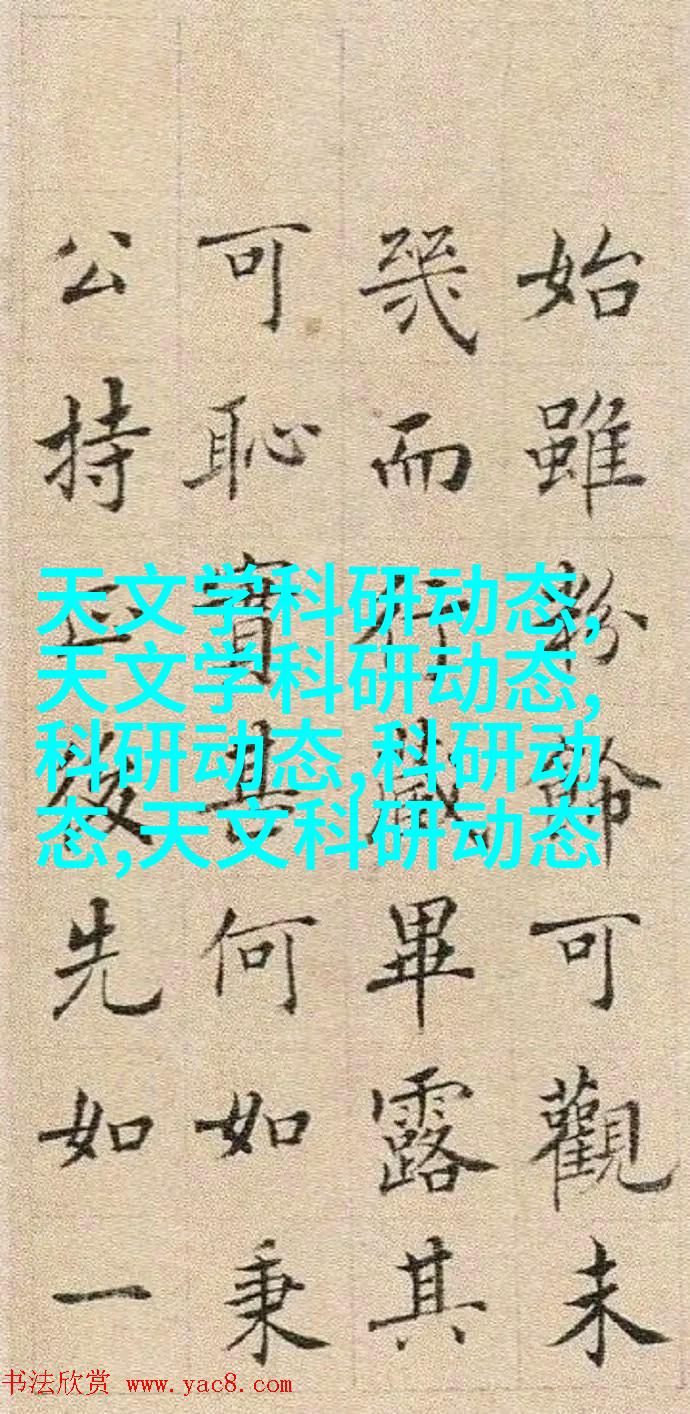 始雖粉飾可觀未
幾而行藏畢露其
可恥實其何如秉
公持正後先如一
天文学科研动态,
天文学科研动态,
科研动态,科研动
态,天文科研动态
书法欣赏 www.yac8.com